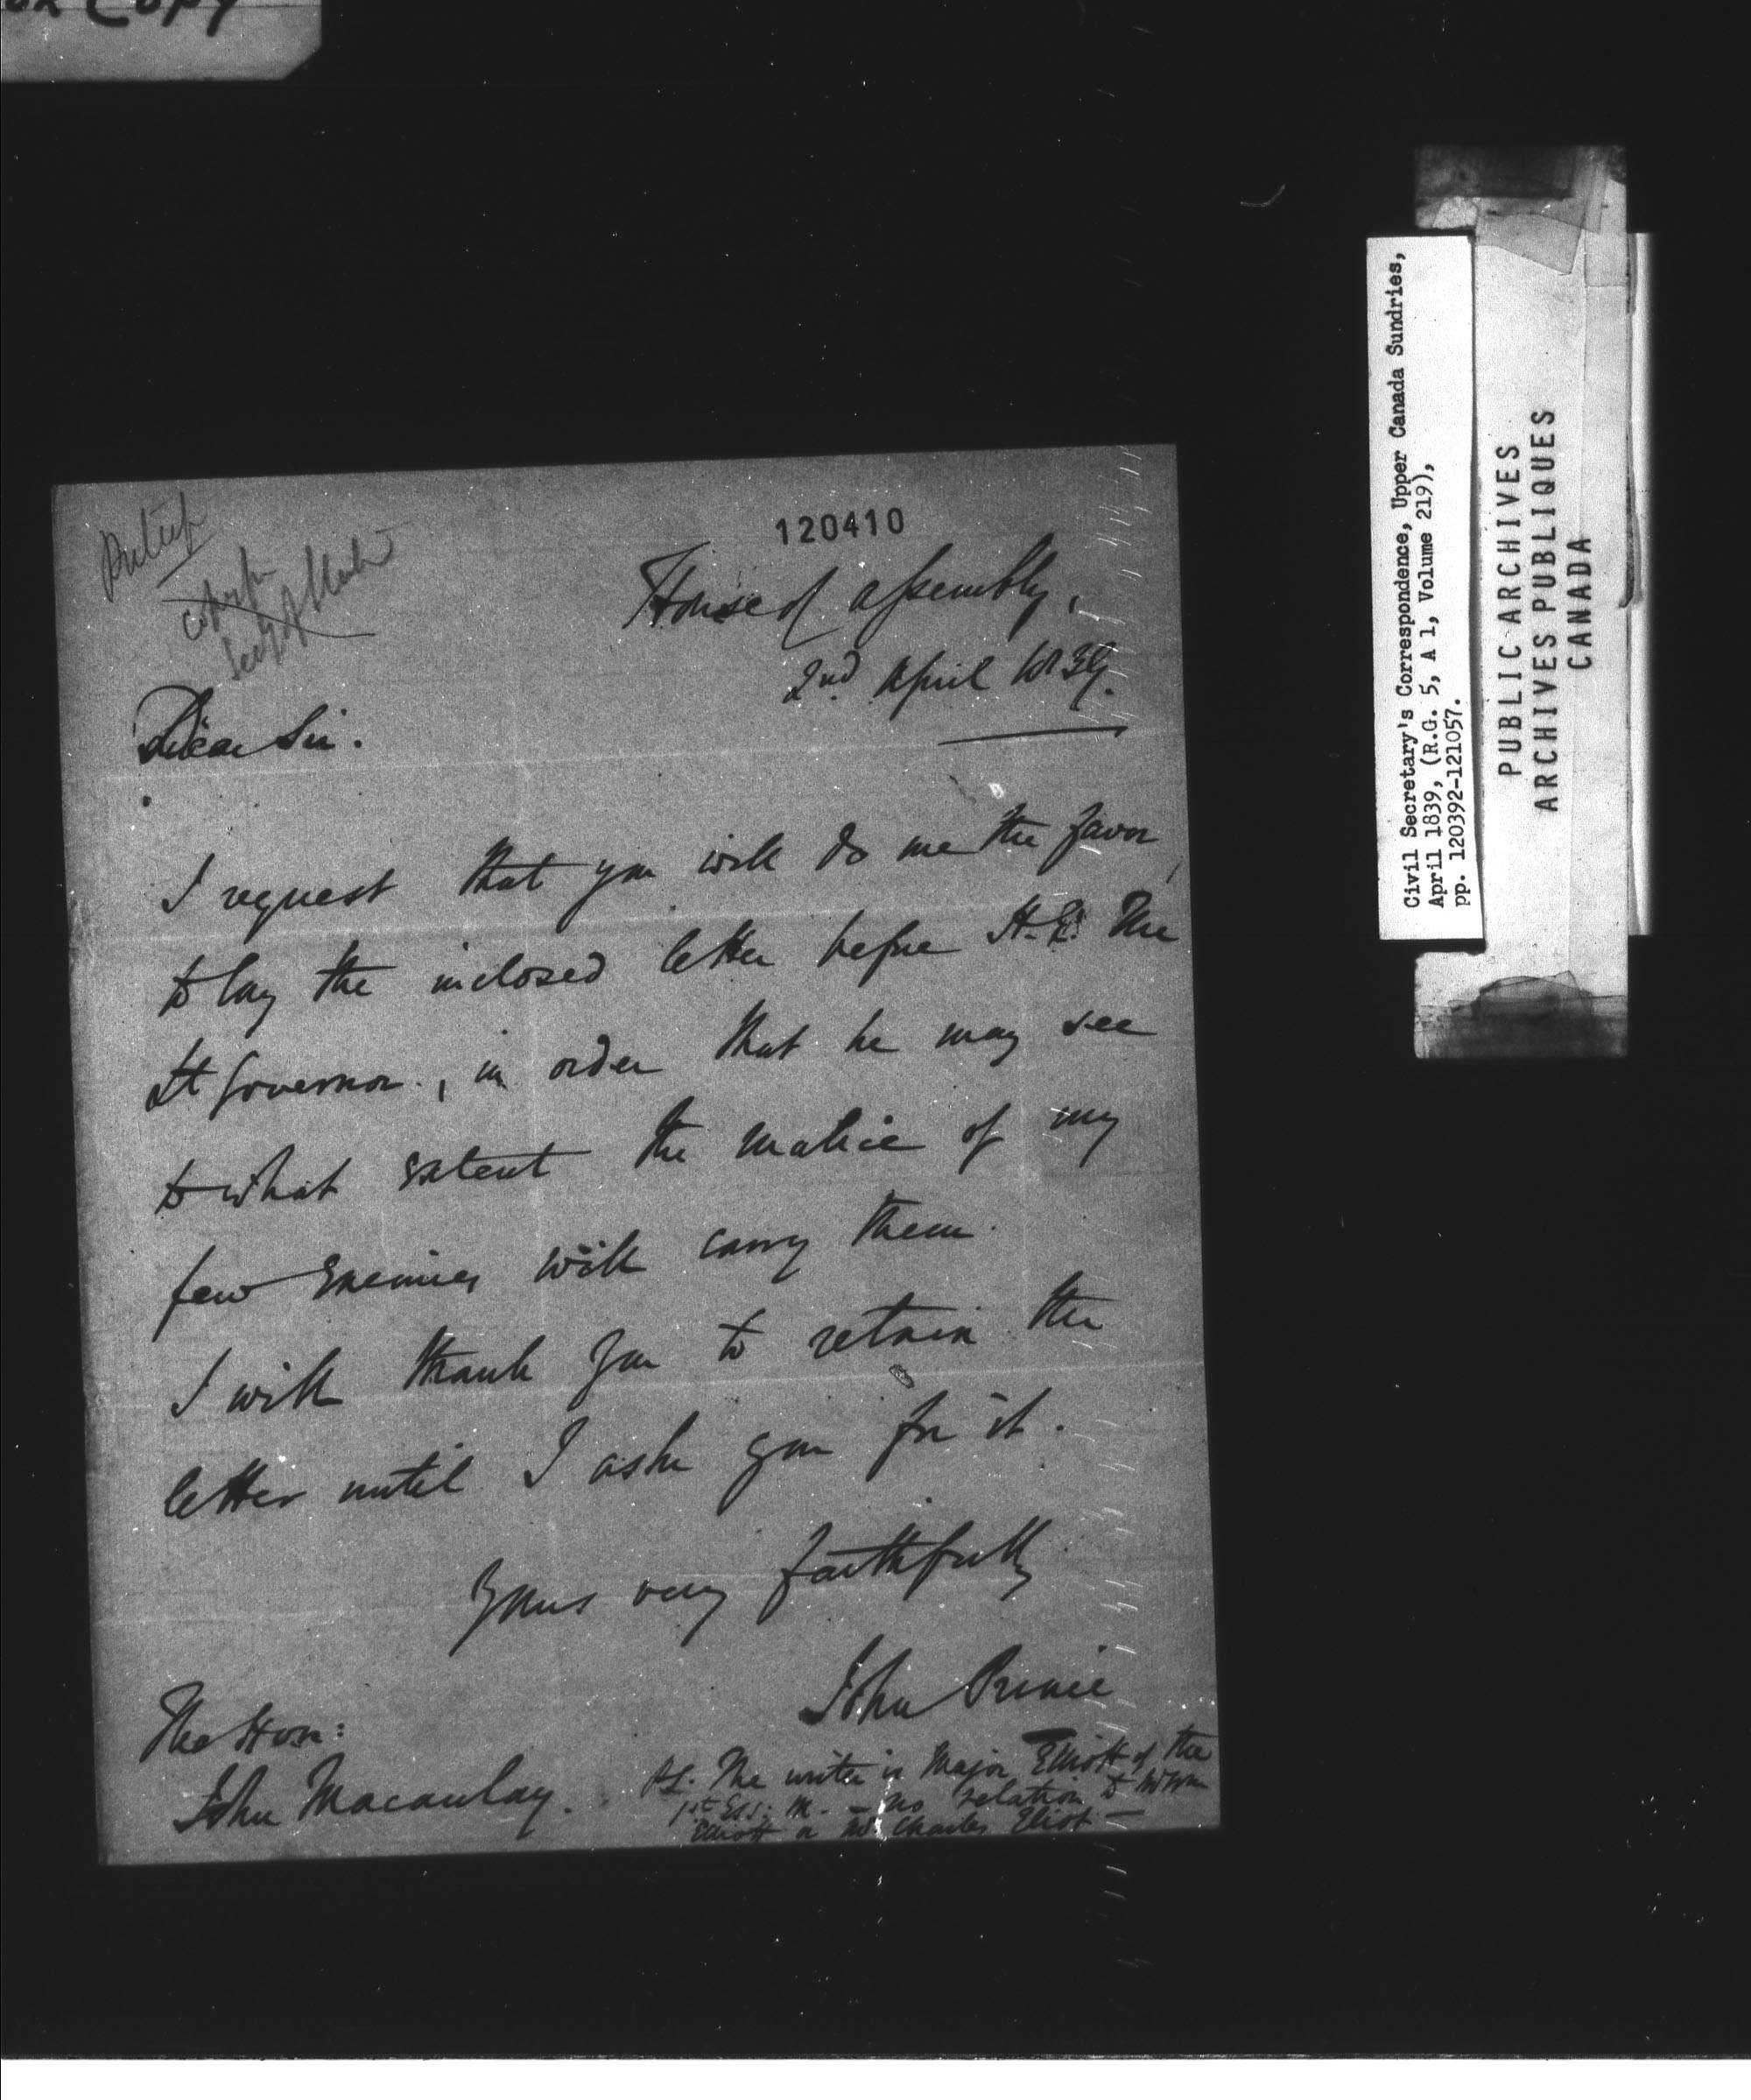 Copy
120410
Put up
House of Assembly,
2nd April 1839.
Dear Sir.
I request that you will do me the favor,
to lay the inclosed letter before H.E. The
Lt Governor, in order that he may see
to what extent the malice of my
few Enemies will carry them.
I will thank you to retain the
letter until I ask you for it.
Yours very faithfully
John Prince
The Hon:
John Macaulay.
P.S. The writer is Major Elliott of the
1st Ess: M. — no relation to Mr Wm
Elliott or Mr Charles Eliot —
Civil Secretary's Correspondence, Upper Canada Sundries,
April 1839, (R.G. 5, A 1, Volume 219),
pp. 120392-121057.
PUBLIC ARCHIVES
ARCHIVES PUBLIQUES
CANADA